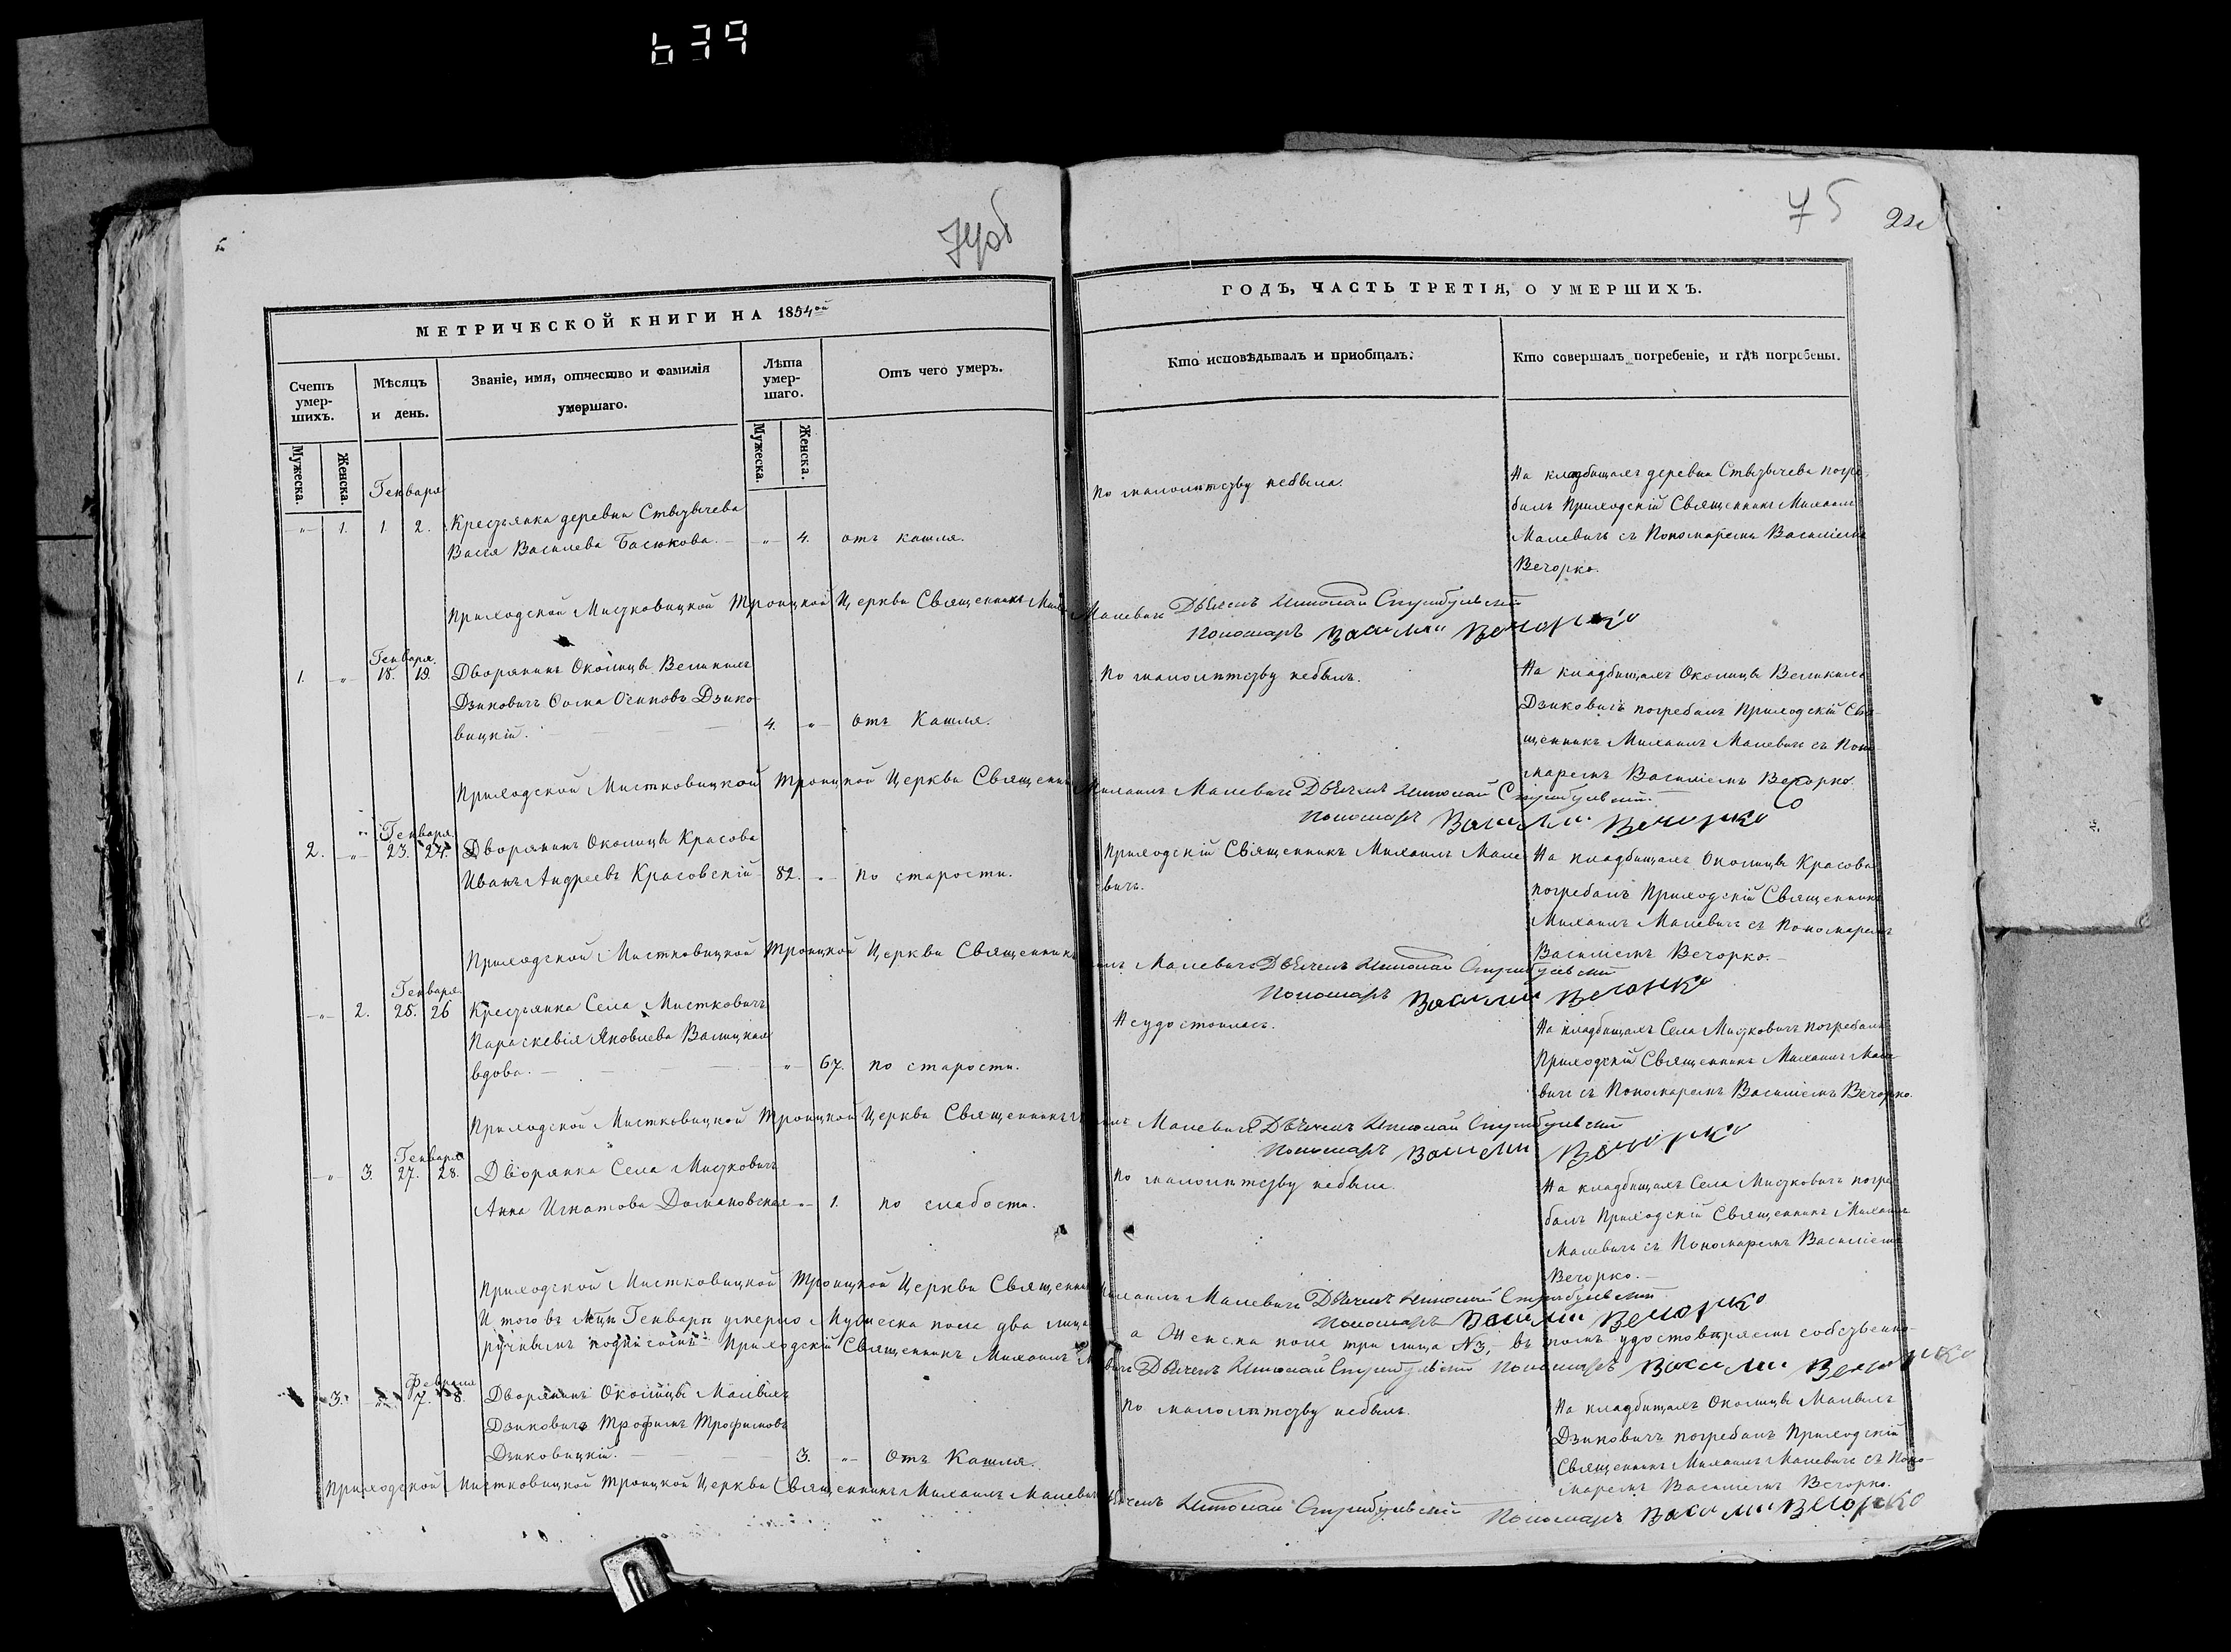 639
74об
75
МЕТРИЧЕСКОЙ КНИГИ НА 1854ой
ГОДЪ, ЧАСТЬ ТРЕТІЯ, О УМЕРШИХЪ.
Счетъ умер-
шихъ.
Мѣсяцъ
и день.
Званіе, имя, отчество и фамилія
умершаго.
Лѣта
умер-
шаго.
Отъ чего умеръ.
Кто исповѣдывалъ и пріобщалъ.
Кто совершалъ погребеніе, и гдѣ погребены.
Мужеска.
Женска.
Мужеска.
Женска.
Генваря
" 1. 1 2. Крестьянка деревни
Васса Василева Басюкова. " 4. отъ кашля.
По малолѣтству небыла.
На кладбищахъ деревни погре-
балъ Приходскій Священникъ Михаилъ
Малевичъ съ Пономаремъ Василіемъ
Вечорко.
Приходской Мистковицкой Троицкой Церкви Священникъ Малевичъ Дьячекъ Николай
Пономарь Василий Вечорко
Генваря.
1. " 18. 19. Дворянинъ Околицы Великихъ
Дзиковичъ Осиповъ Дзико-
вицкій. 4. " отъ Кашля.
По малолѣтству небылъ.
На кладбищахъ Околицы Великихъ
Дзиковичъ погребалъ Приходскій Свя-
щенникъ Михаилъ Малевичъ съ Поно-
маремъ Василіемъ Вечорко.
Приходской Мистковицкой Троицкой Церкви Священникъ Михаилъ Малевичъ Дьячекъ Николай
Пономарь Василий Вечорко
Генваря.
2. " 23. 24. Дворянинъ Околицы Красова
Иванъ Андреевъ Красовскій 82. " по старости.
Приходскій Священникъ Михаилъ Мале-
вичъ.
На кладбищахъ Околицы Красова
погребалъ Приходскій Священникъ
Михаилъ Малевичъ съ Пономаремъ
Василіемъ Вечорко.
Приходской Мистковицкой Троицкой Церкви Священникъ Малевичъ Дьячекъ Николай
Пономарь Василий Вечорко
Генваря.
" 2. 25. 26 Крестьянка Села Мистковичъ
Параскевія Яковлева Валицкая
вдова. " 67. по старости.
Неудостоилась.
На кладбищахъ Села Мистковичъ погребалъ
Приходскій Священникъ Михаилъ Мале-
вичъ съ Пономаремъ Василіемъ Вечорко.
Приходской Мистковицкой Троицкой Церкви Священникъ Малевичъ Дьячекъ Николай
Пономарь Василий Вечорко
Генваря
" 3. 27. 28. Дворянка Села Мистковичъ
Анна Игнатова Домановская " 1. по слабости.
По малолѣтству небыла.
На кладбищахъ Села Мистковичъ погре-
балъ Приходскій Священникъ Михаилъ
Малевичъ съ Пономаремъ Василіемъ
Вечорко.
Приходской Мистковицкой Троицкой Церкви Священникъ Михаилъ Малевичъ Дьячекъ Николай
Пономарь Василий Вечорко
И того въ Мцѣ Генварѣ умерло Мужеска пола два лица а Женска пола три лица №3, въ томъ удостовѣряемъ собственно-
ручнымъ подписомъ Приходскій Священникъ Михаилъ Дьячекъ Николай Пономарь Василий Вечорко
Февраля
3. " 7. 8. Дворянинъ Околицы Малыхъ
Дзиковичъ Трофимъ Трофимовъ
Дзиковицкій. 3. " Отъ Кашля.
По малолѣтству небылъ.
На кладбищахъ Околицы Малыхъ
Дзиковичъ погребалъ Приходскій
Священникъ Михаилъ Малевичъ съ Поно-
маремъ Василіемъ Вечорко.
Приходской Мистковицкой Троицкой Церкви Священникъ Михаилъ Малевичъ Дьячекъ Николай Пономарь Василий Вечорко